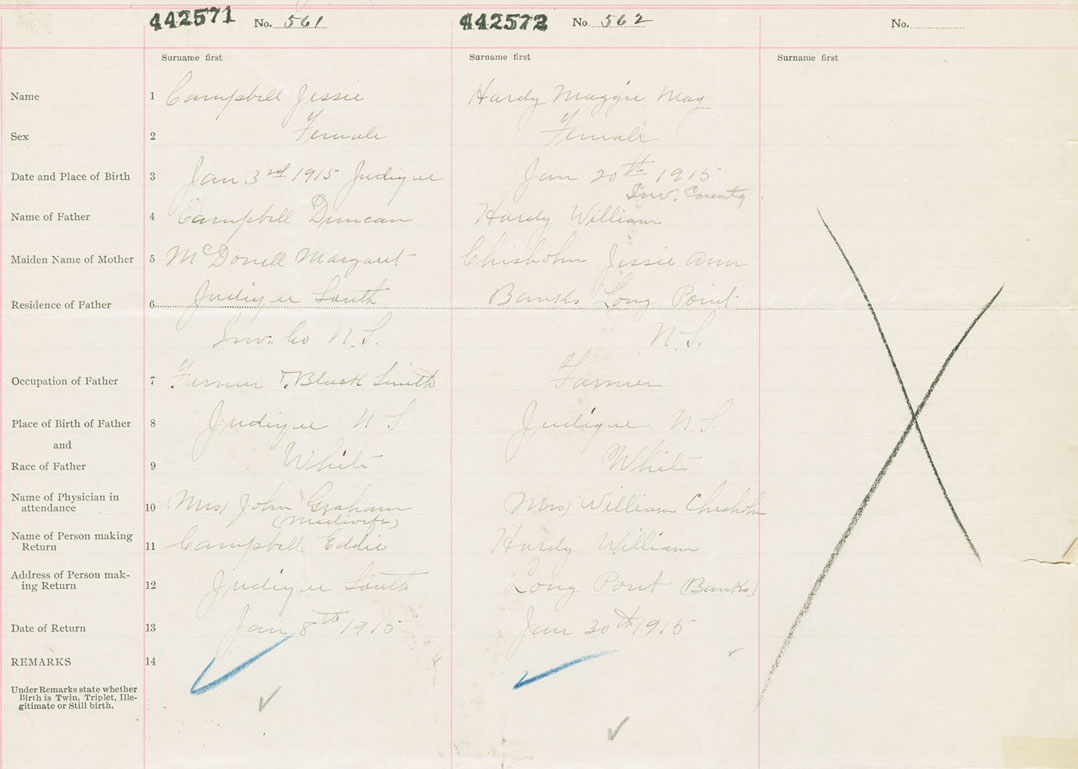 442571 No. 561 442572 No 562 No.
Surname first Surname first Surname first
Name 1 Campbell Jessie Hardy Maggie May
Sex 2 Female Female
Date and Place of Birth 3 Jan 3rd 1915 Judique Jan 20th 1915
Inv. County
Name of Father 4 Campbell Duncan Hardy William
Maiden Name of Mother 5 McDonell Margaret Chisholm Jessie Ann
Residence of Father 6 Judique South Banks Long Point
Inv. Co N.S. N.S.
Occupation of Father 7 Farmer Black Smith Farmer
Place of Birth of Father 8 Judique N S Judique N.S.
and
Race of Father 9 White White
Name of Physician in
attendance 10 Mrs John Graham Mrs William Chisholm
(Midwife)
Name of Person making
Return 11 Campbell Eddie Hardy William
Address of Person mak-
ing Return 12 Judique South Long Point (Banks)
Date of Return 13 Jan 8th 1915 Jan 30th 1915
REMARKS 14
Under Remarks state whether
Birth is Twin, Triplet, Ille-
gitimate or Still birth.